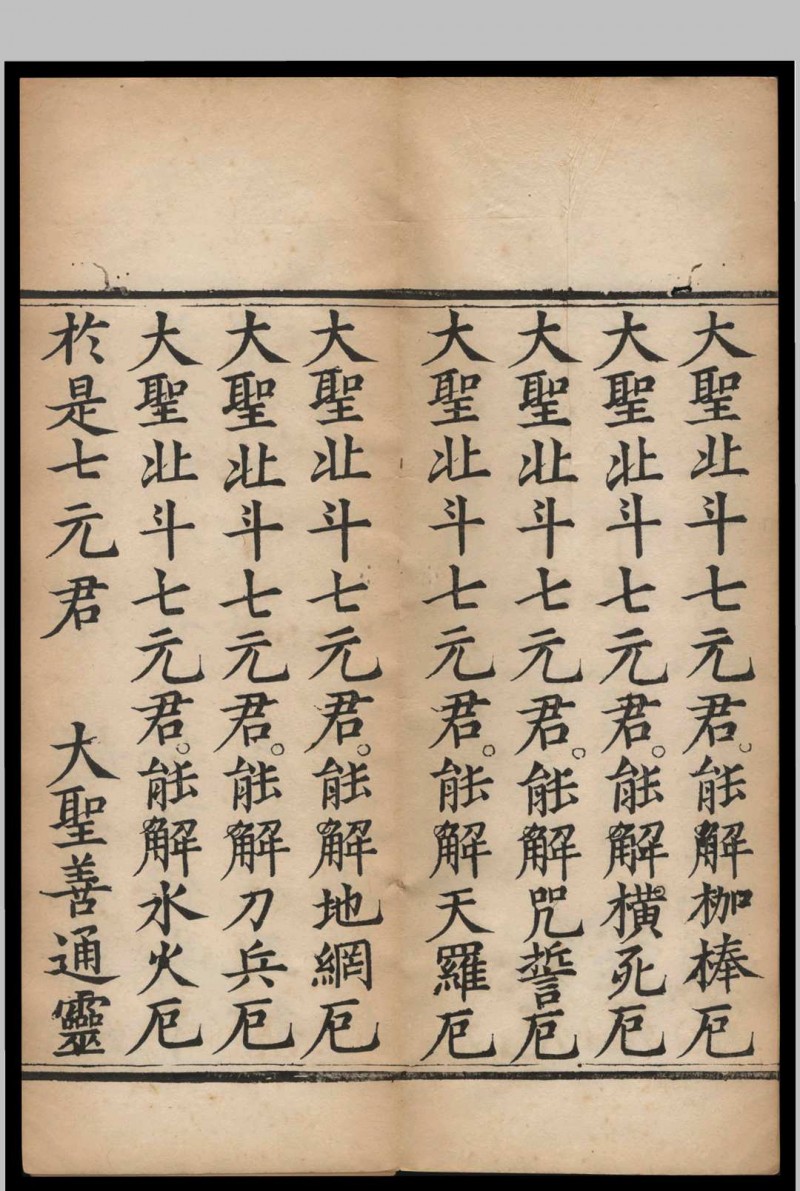 大聖北斗七元君。能解枷棒厄
大聖北斗七元君。能解橫死厄
大聖北斗七元君。能解咒誓厄
大聖北斗七元君。能解天羅厄
大聖北斗七元君。能解地網厄
大聖北斗七元君。能解刀兵厄
大聖北斗七元君。能解水火厄
於是七元君　大聖善通靈